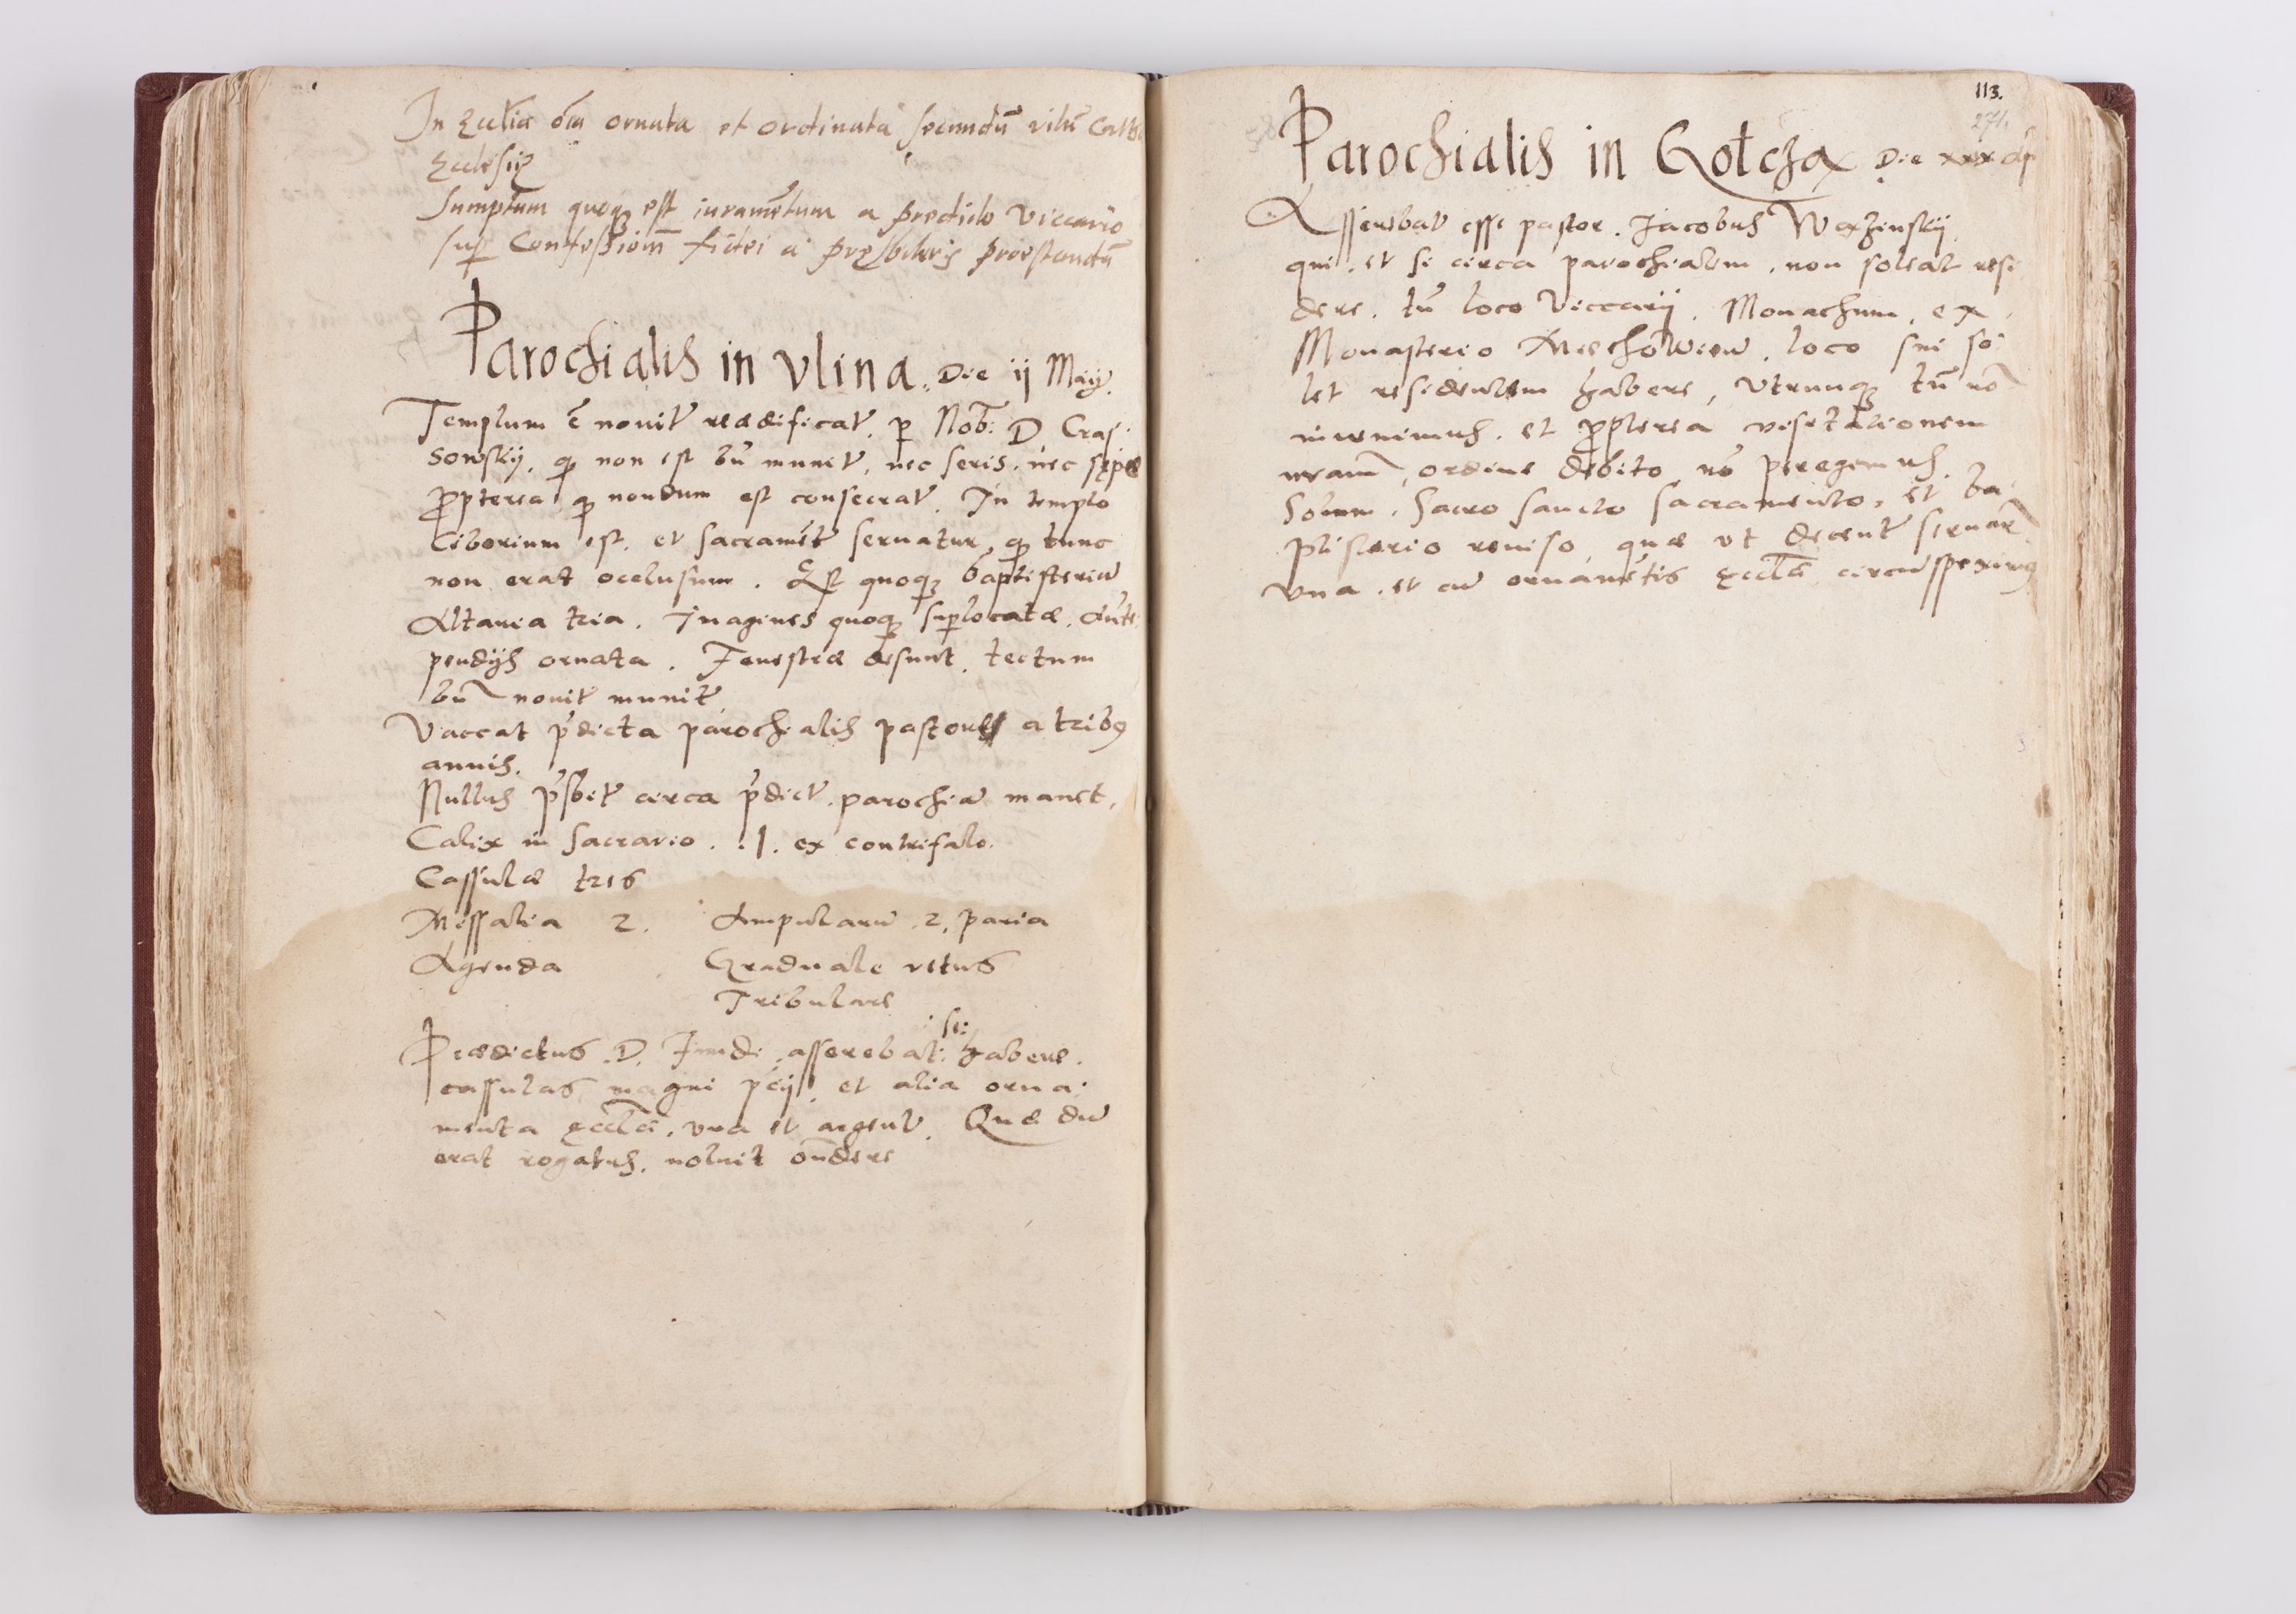 In Ecclia oia ornata et ordinata secundū ritū Catho
Ecclesię
Sumptum quoq est iuramētum a predicto Viccario
sup Confessionē fidei a pręsbiteris proestandū
Parochialis in Vlina. Die ij Maij.
Templum ē nouit reædificat. p Nob: D. Cras
sowskij, q non est bn munit, nec seris, nec sępe
propterea q nondum est consecrat. In templo
Ciborium est, et sacramēt seruatur q tunc
non erat oclusum. Est quoq baptisteriū
Altaria tria. Imagines quoq suplocatæ, Ante
pendijs ornata. Fenestræ desunt, tectum
bn nouit munit
Vaccat pdicta parochialis pastore a trib9
annis.
Nullus psbit circa pdict parochiā manet.
Calix in sacrario .1. ex contrifalo.
Cassulæ tres
Missalia 2. Ampularū 2. paria
Agenda Graduale vetus
Tribulare
se:
Prædictus D. Fundi asserebat habere
cassulas magni pcij, et alia orna
menta Eccle, vna et argent. Quæ dū
erat rogatus, noluit ondere
113.
271.
Parochialis in Gołcza Die xxx Ap
Asserebat esse pastor. Jacobus
qui, et si circa parochialem, non soleat resi
dere, tn loco Viccarij, Monachum, ex
Monasterio Miechowien, loco sui so
let residentem habere, Vtrunq tn nō
inuenimus, et propterea visitationem
nram, ordine debito, nō peregimus.
Solum, Sacro sancto sacramento, et ba
ptisterio reuiso, quæ vt decent seruar
vna, et cū ornamētis Eccle circūspeximus